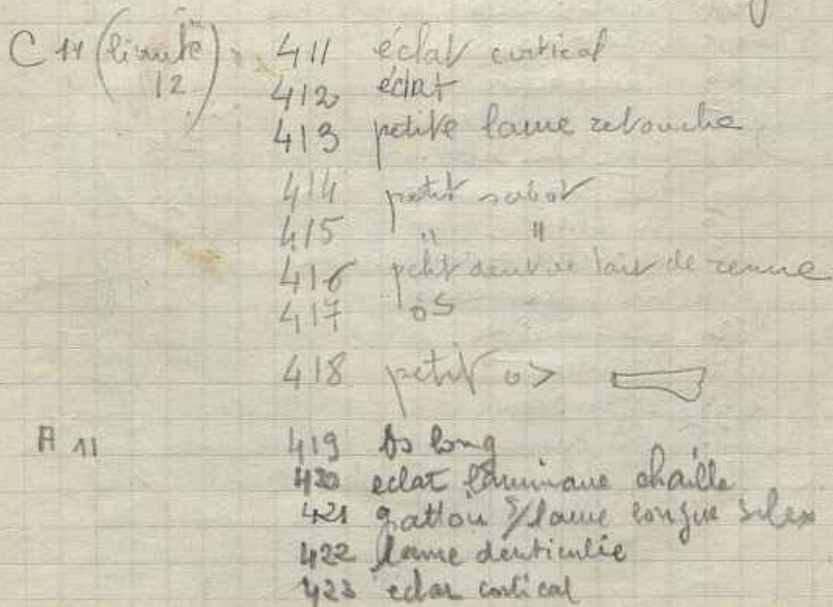 C 11 (limite 12) 411 éclat cortical
412 éclat
413 petite lame retouche
414 petit sabot
415 " "
416 petit dent de lait de renne
417 os
418 petit os
A 11 419 os long
420 eclat laminaire chaille
421 grattoir s/lame longue silex
422 lame denticulée
423 eclat cortical